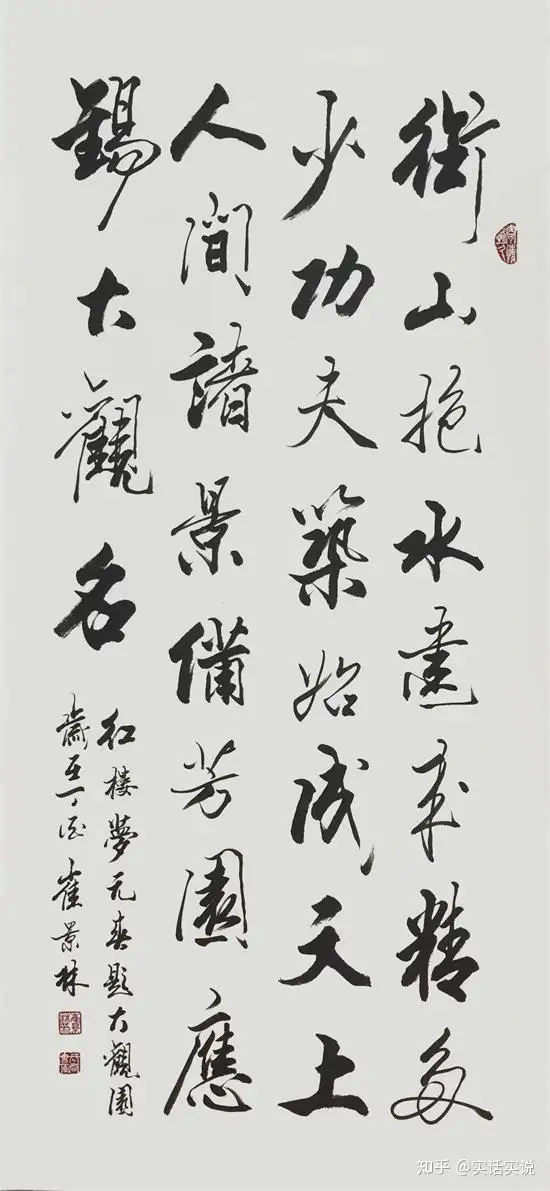 銜山抱水建来精多
少功夫築始成天上
人間諸景備芳園應
錫大觀名
红楼夢元春題大觀園
丁酉崔景林
知乎 @实话实说